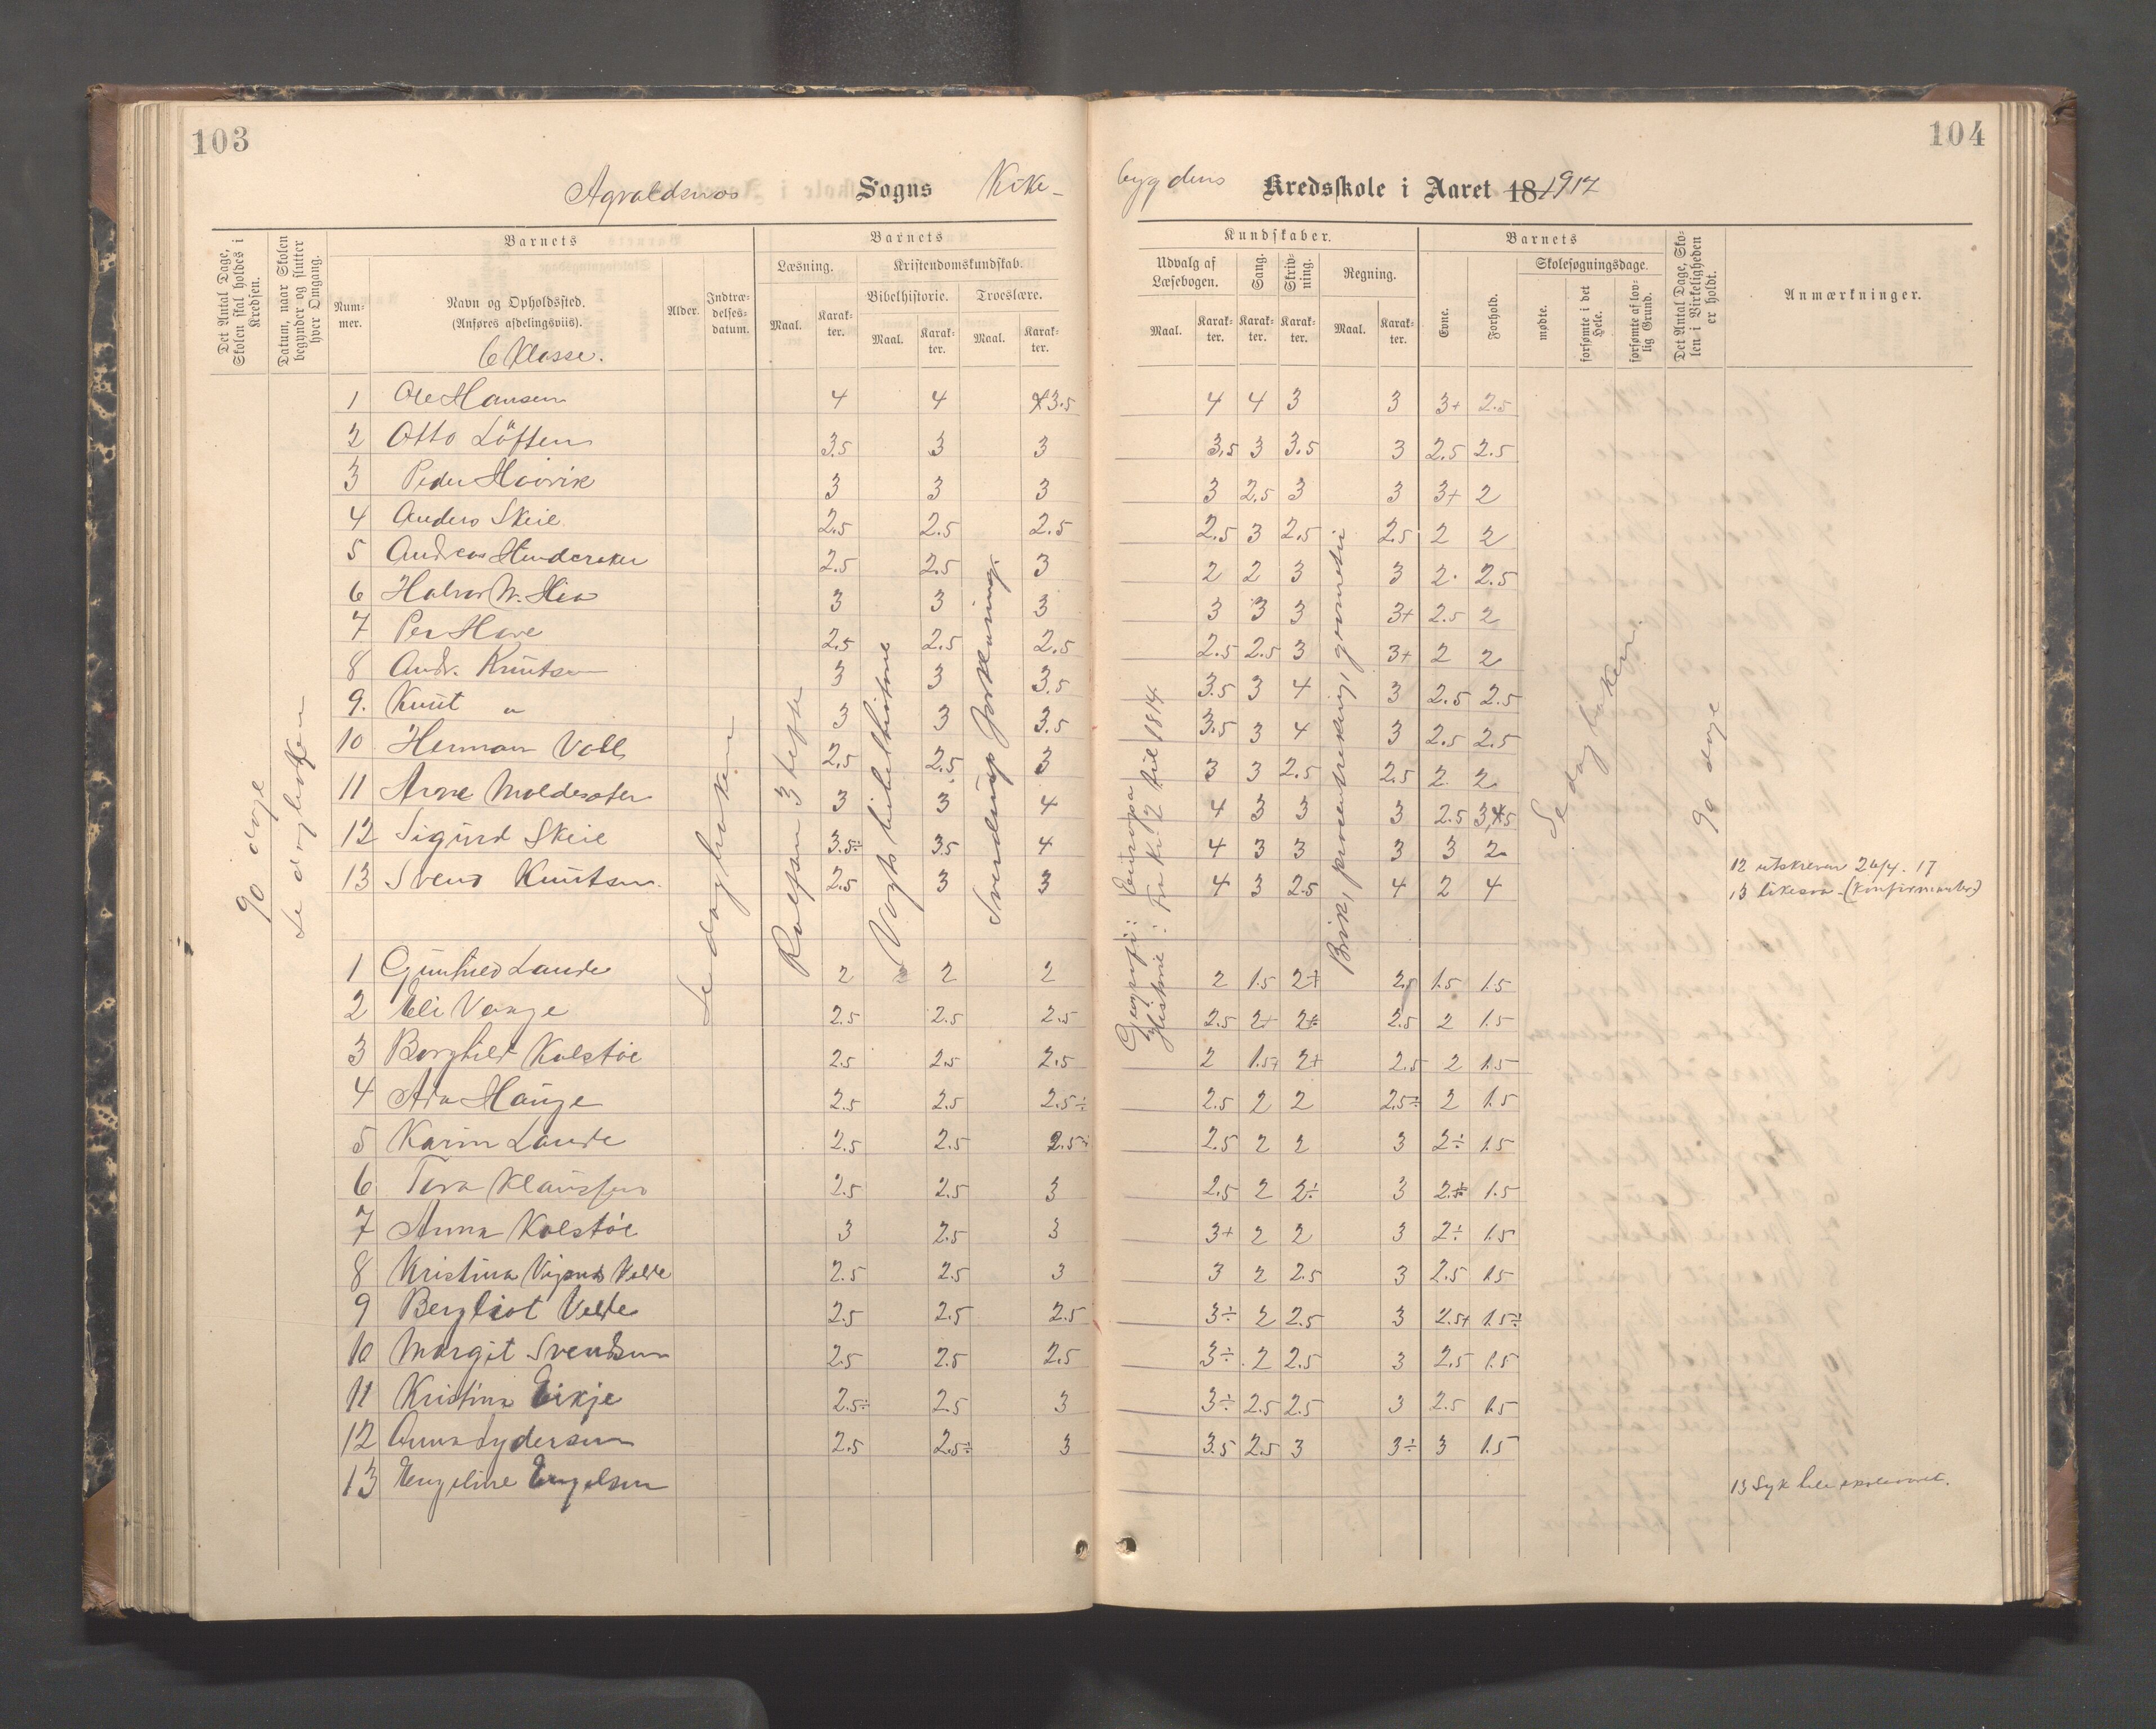 103
104
Sogns
bygdens Kredsskole i Aaret 18 1917
Det Antal Dage, Skolen skal holdes i Kredsen.
Datum, naar Skolen begynder og slutter hver Omgang.
Barnets
Nummer.
Navn og Opholdssted.
(Anføres afdelingsviis).
6 Klasse.
Alder.
Indtrædelsesdatum.
Barnets
Læsning.
Maal.
Karakter.
Kristendomskundskab.
Bibelhistorie.
Maal.
Karakter.
Troeslære.
Maal.
Karakter.
Kundskaber.
Udvalg af Læsebogen.
Maal.
Karakter.
Sang.
Karakter.
Skrivning.
Karakter.
Regning.
Maal.
Karakter.
Barnets
Evne.
Forhold.
Skolesøgningsdage.
mødte.
forsømte i det Hele.
forsømte af lovlig Grund.
Det Antal Dage, Skolen i Virkeligheden er holdt.
Anmærkninger.
90 dage
Se dagboken
Se dagboken
Rolfsen 3
Vogts bibelhistorie
Sverdrup forklaring.
Geografi: Europa
Historie: Fra Kr. 2 til 1814.
Brøk, procentrekning, geometri
Se dagboken.
90 dage
1 Ole Hansen 4 4 3.5 4 4 3 3 3+ 2.5
2 Otto Løften 3.5 3 3 3,5 3 3.5 3 2.5 2.5
3 Peder Høvik 3 3 3 3 2.5 3 3 3+ 2
4 Anders Skeie 2.5 2.5 2.5 2.5 3 2.5 2.5 2 2
5 Andreas 2.5 2.5 3 2 2 3 3 2 2.5
6 Halvor 3 3 3 3 3 3 3+ 2.5 2
7 Per 2.5 2.5 2.5 2.5 2.5 3 3+ 2 2
8 Andr. Knutsen 3 3 3.5 3.5 3 4 3 2.5 2.5
9. Knut " 3 3 3.5 3.5 3 4 3 2.5 2.5
10 Herman Valle 2.5 2.5 3 3 3 2.5 2.5 2 2
11 Arne 3 3 4 4 3 3 3 2.5
12 Sigurd Skeie 3.5÷ 3.5 4 4 3 3 3 3 2
13 Svend Knutsen. 2.5 3 3 4 3 2.5 4 2 4
12 utskreven 26/4. 17
13 likesaa - (Konfirmanter)
1 Gunhild Lande 2 2 2 2 1.5 2+ 2.5 1.5 1.5
2 Eli Vange 2.5 2.5 2.5 2.5 2+ 2+ 2.5 2 1.5
3 Borghild Kolstøe 2.5 2.5 2.5 2 1.5+ 2+ 2.5 2 1.5
4 Hauge 2.5 2.5 2.5÷ 2.5 2 2 2.5÷ 2 1.5
5 Karin Lande 2.5 2.5 2.5÷ 2.5 2 2 3 2÷ 1.5
6 Tora Klaussen 2.5 2.5 3 2.5 2 2÷ 3 1.5
7 Anna Kolstøe 3 2.5 3 3+ 2 2 3 2÷ 1.5
8 Kristina Velde 2.5 2.5 3 3 2 2.5 3 2.5 1.5
9 Bergliot Velde 2.5 2.5 2.5 3÷ 2 2.5 3 2.5+ 1.5÷
10 Margit Svendsen 2.5 2.5 2.5 3÷ 2 2.5 3 2.5 1.5
11 Kristina Eikje 2.5÷ 2.5 3 3÷ 2.5 2.5 3 2.5 1.5
12 Anna Sydersen 2.5 2.5÷ 3 3.5 2.5 3 3÷ 3 1.5
13 Engeline Engelsen
13 Syk hele skoleaaret.